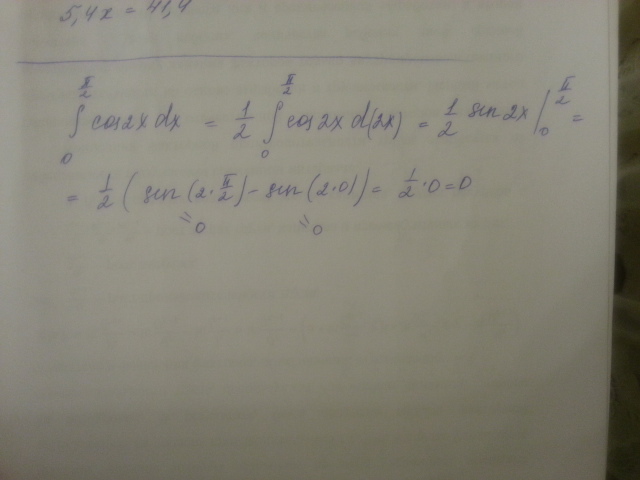 5,4x = 41,4
∫₀^{π/2} cos2x dx = 1/2 ∫₀^{π/2} cos2x d(2x) = 1/2 sin 2x |₀^{π/2} =
= 1/2 ( sin(2·π/2) - sin(2·0) ) = 1/2 · 0 = 0
=0 =0